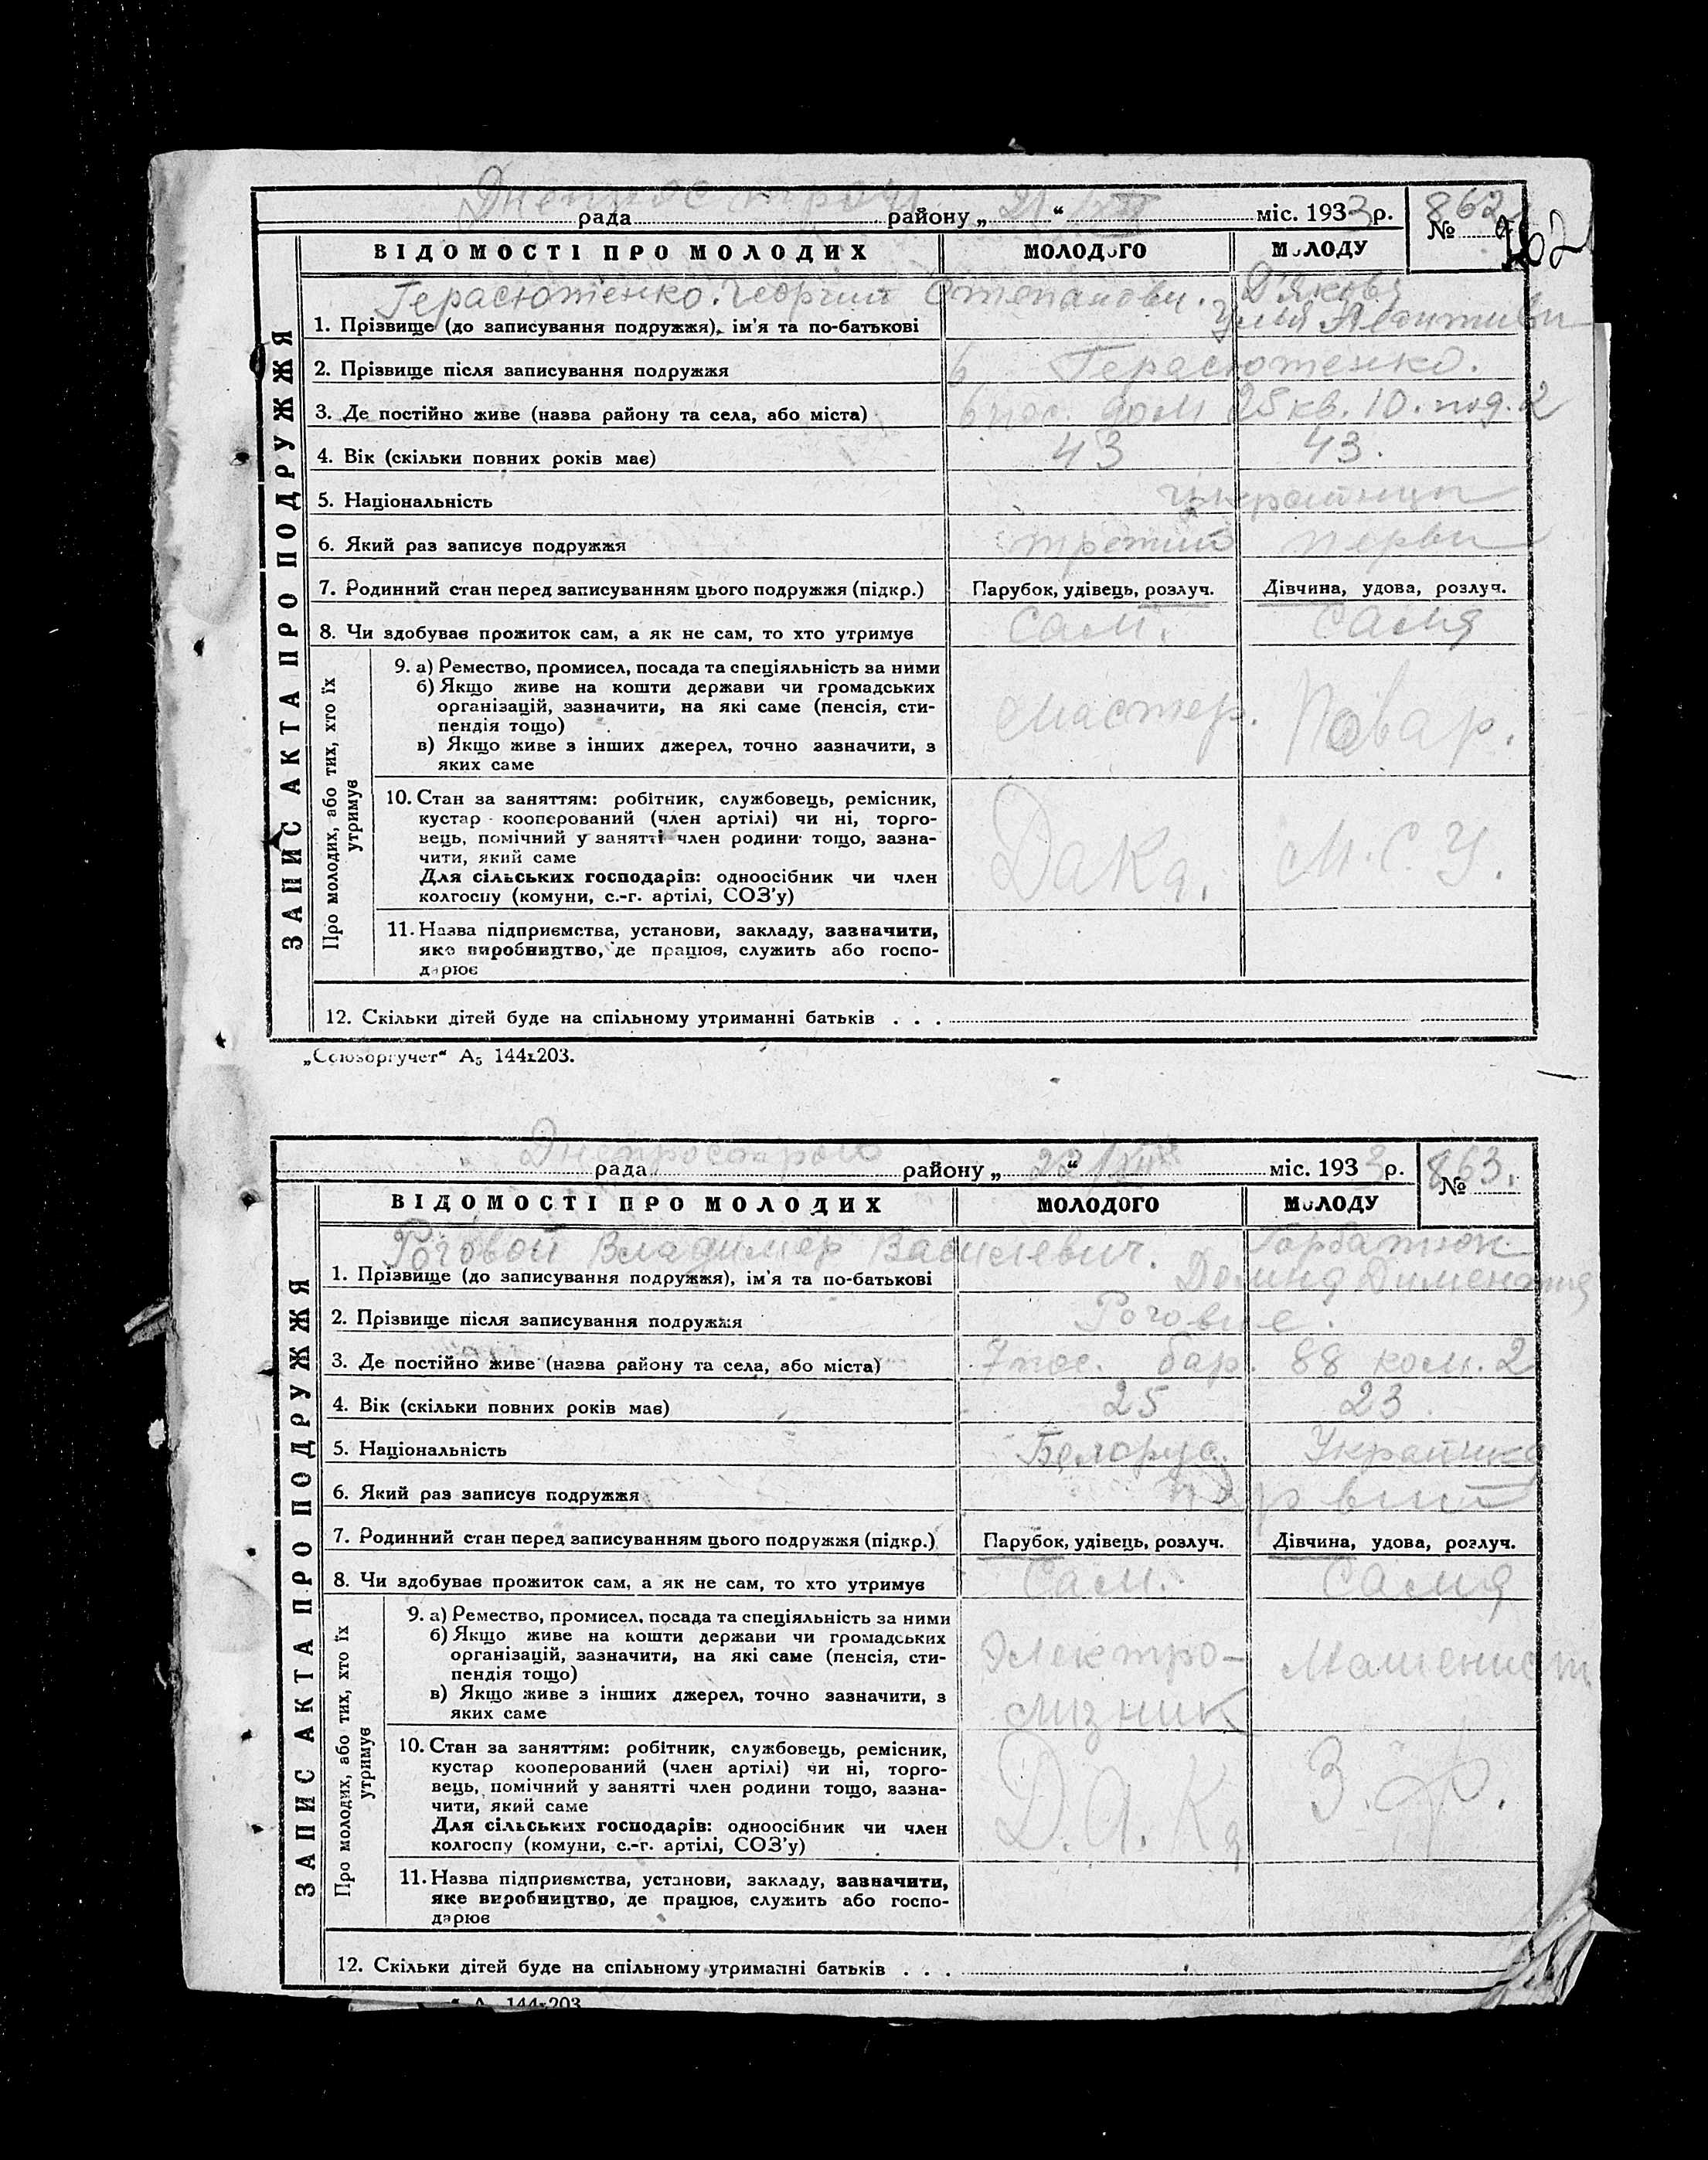 Днепрострой 21/XII 862
рада района „ “ міс. 1933 р. № 762
ВІДОМОСТІ ПРО МОЛОДИХ МОЛОДОГО МОЛОДУ
Герасютенко Георгий Степанови. Д'якова
1. Прізвище (до записування подружжя), ім'я та по-батькові
2. Прізвище після записування подружжя Герасютенко.
3. Де постійно живе (назва району та села, або міста) 6 пос. дом 25 кв. 10. под. 2
4. Вік (скільки повних років має) 43 43.
5. Національність
6. Який раз записує подружжя третий первы
7. Родинний стан перед записуванням цього подружжя (підкр.) Парубок, удівець, розлуч. Дівчина, удова, розлуч.
8. Чи здобував прожиток сам, а як не сам, то хто утримує сам. сама
9. а) Ремество, промисел, посада та спеціяльність за ними
б) Якщо живе на кошти держави чи громадських
організацій, зазначити, на які саме (пенсія, сти-
пендія тощо)
в) Якщо живе з інших джерел, точно зазначити, з
яких саме
мастер. Повар.
10. Стан за заняттям: робітник, службовець, ремісник,
кустар кооперований (член артілі) чи ні, торго-
вець, помічний у занятті член родини тощо, зазна-
чити, який саме
Для сільських господарів: одноосібник чи член
колгоспу (комуни, с.-г. артілі, СОЗ'у)
Дака. М.С.У.
11. Назва підприємства, установи, закладу, зазначити,
яке виробництво, де працює, служить або госпо-
дарює
12. Скільки дітей буде на спільному утриманні батьків . . .
ЗАПИС АКТА ПРО ПОДРУЖЖЯ
Про молодих, або тих, хто їх
утримує
„Союзоргучет“ А5 144х203.
Днепрострой 22/XII 863.
рада району „ “ міс. 1933 р. №
ВІДОМОСТІ ПРО МОЛОДИХ МОЛОДОГО МОЛОДУ
Роговой Владимер Василевич. Горбатюк
1. Прізвище (до записування подружжя), ім'я та по-батькові
2. Прізвище після записування подружжя Роговые.
3. Де постійно живе (назва району та села, або міста) 7 пос. бар. 88 ком. 2
4. Вік (скільки повних років має) 25 23
5. Національність Белорус. Украинка
6. Який раз записує подружжя первый
7. Родинний стан перед записуванням цього подружжя (підкр.) Парубок, удівець, розлуч. Дівчина, удова, розлуч.
8. Чи здобував прожиток сам, а як не сам, то хто утримує сам. сама
9. а) Ремество, промисел, посада та спеціяльність за ними
б) Якщо живе на кошти держави чи громадських
організацій, зазначити, на які саме (пенсія, сти-
пендія тощо)
в) Якщо живе з інших джерел, точно зазначити, з
яких саме
Электро- Машенист
10. Стан за заняттям: робітник, службовець, ремісник,
кустар кооперований (член артілі) чи ні, торго-
вець, помічний у занятті член родини тощо, зазна-
чити, який саме
Для сільських господарів: одноосібник чи член
колгоспу (комуни, с.-г. артілі, СОЗ'у)
11. Назва підприємства, установи, закладу, зазначити,
яке виробництво, де працює, служить або госпо-
дарює
12. Скільки дітей буде на спільному утриманні батьків . . .
ЗАПИС АКТА ПРО ПОДРУЖЖЯ
Про молодих, або тих, хто їх
утримує
144х203